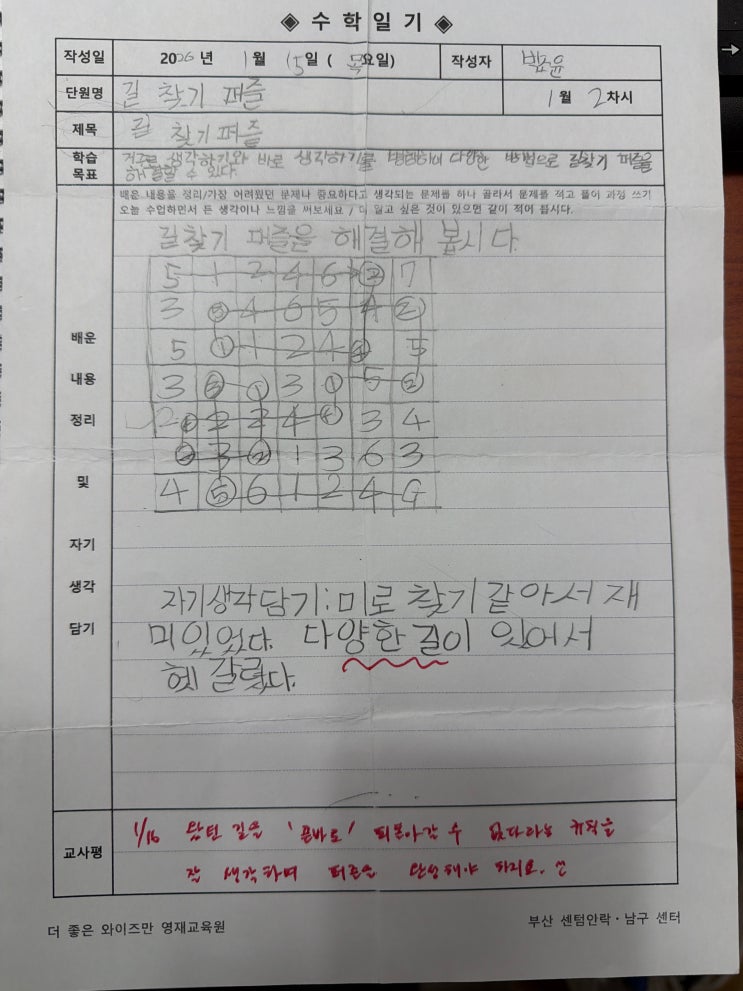 ◈ 수 학 일 기 ◈
작성일 2026년 1월 15일 ( 목요일) 작성자
단원명 길 찾기 퍼즐 1월 2차시
제목 길 찾기 퍼즐
학습 목표 거꾸로 생각하기와 바로 생각하기를 병행하여 다양한 방법으로 길찾기 퍼즐을
해결할 수 있다.
배운 내용을 정리/가장 어려웠던 문제나 중요하다고 생각되는 문제를 하나 골라서 문제를 적고 풀어 과정 쓰기
오늘 수업하면서 든 생각이나 느낌을 써보세요 / 더 알고 싶은 것이 있으면 같이 적어 봅시다.
길찾기 퍼즐을 해결해 봅시다.
5 1 2 4 6 2 7
3 5 4 6 5 4 2
5 1 1 2 4 4 5
3 3 1 3 1 5 2
2 1 2 2 4 4 3 4
2 3 2 1 3 6 3
4 5 6 1 2 4 G
배운
내용
정리
및
자기
생각
담기
자기생각담기:미로 찾기같아서 재
미있었다. 다양한 길이 있어서
헷갈렸다.
교사평 1/16 왔던 길을 '곧바로' 되돌아갈 수 없다라는 규칙을
잘 생각하며 퍼즐을 완성해야 하지요.
더 좋은 와이즈만 영재교육원
부산 센텀안락·남구 센터